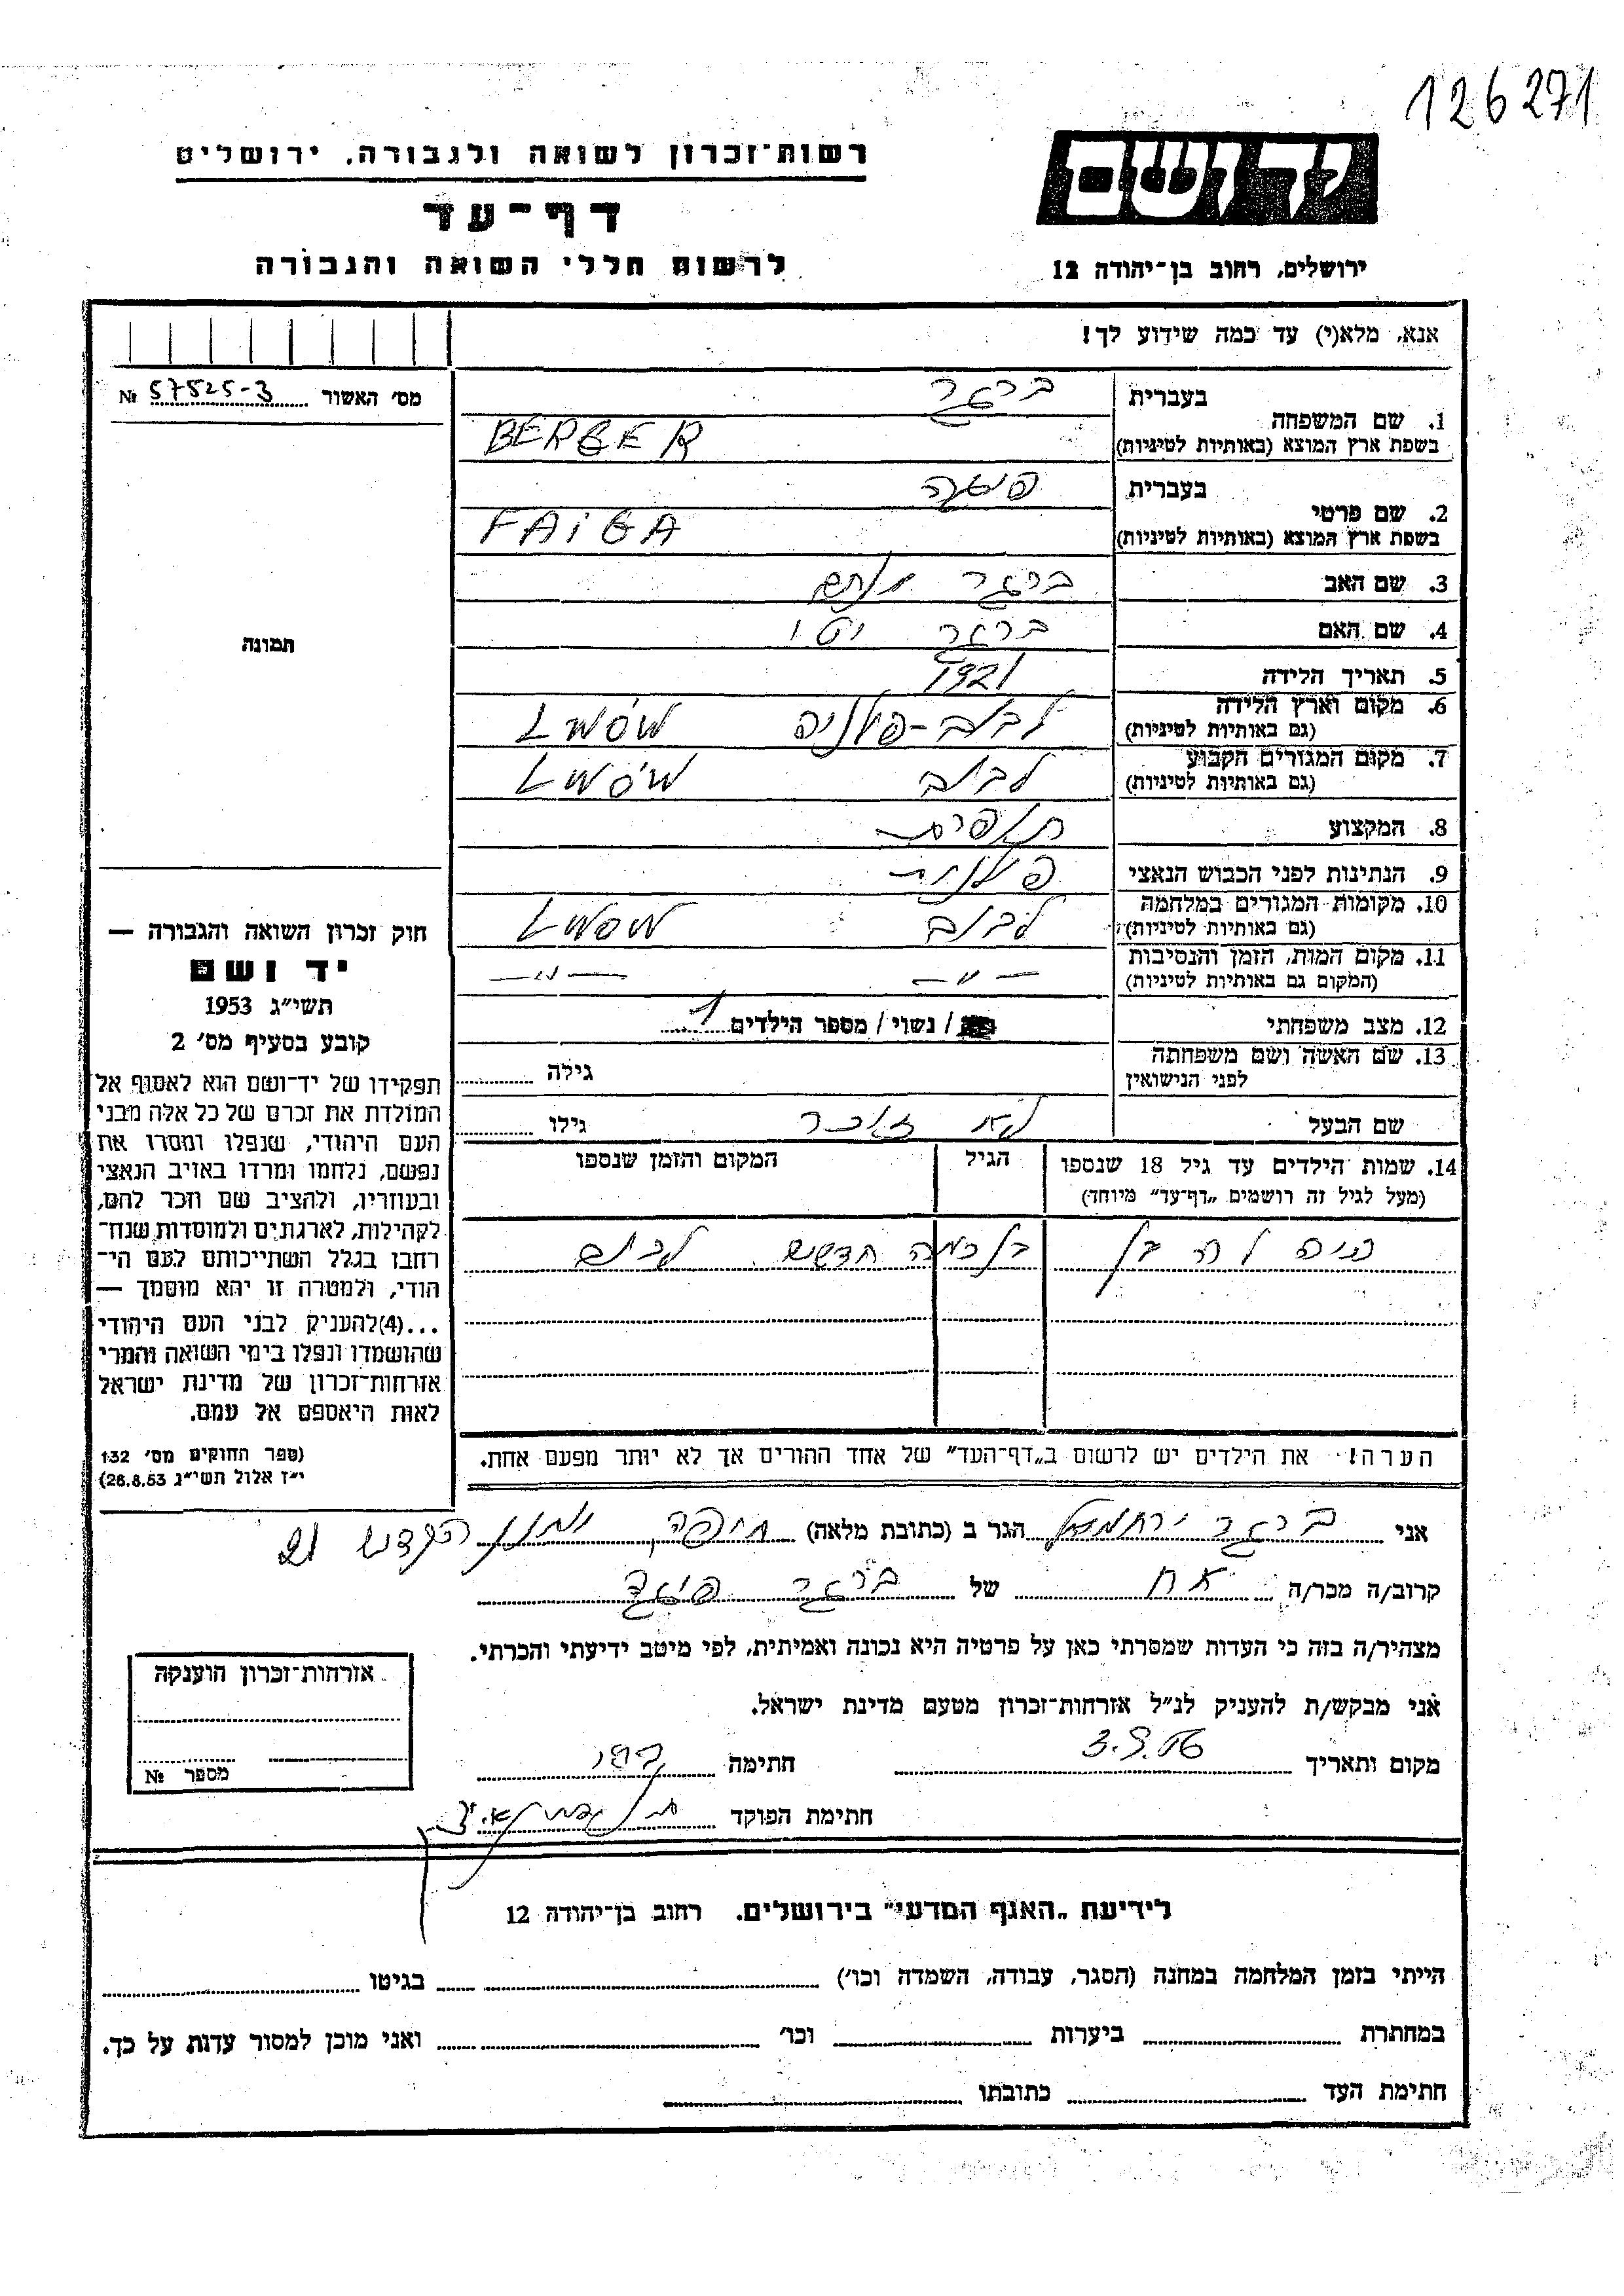 126271
יד ושם
רשות־זכרון לשואה ולגבורה, ירושלים
דף־עד
לרשום חללי השואה והגבורה
ירושלים, רחוב בן־יהודה 12
אנא, מלא(י) עד כמה שידוע לך!
מס׳ האשור 57525-3 №
בעברית ברגר
1. שם המשפחה
בשפת ארץ המוצא (באותיות לטיניות) BERGER
בעברית פיגה
2. שם פרטי
בשפת ארץ המוצא (באותיות לטיניות) FAIGA
3. שם האב ברגר מנחם
4. שם האם ברגר יטי
5. תאריך הלידה 1921
6. מקום וארץ הלידה לבוב-פולניה LWÓW
(גם באותיות לטיניות)
7. מקום המגורים הקבוע לבוב LWÓW
(גם באותיות לטיניות)
8. המקצוע תופרת
9. הנתינות לפני הכבוש הנאצי פולנית
10. מקומות המגורים במלחמה לבוב LWOW
(גם באותיות לטיניות)
11. מקום המות, הזמן והנסיבות — " — — " —
(המקום גם באותיות לטיניות)
12. מצב משפחתי / נשוי / מספר הילדים 1
13. שם האשה ושם משפחתה
לפני הנישואין
גילה
שם הבעל לא זוכר גילו
14. שמות הילדים עד גיל 18 שנספו הגיל המקום והזמן שנספו
(מעל לגיל זה רושמים „דף־עד” מיוחד)
היה לה בן בן כמה חדשים לבוב
הערה: את הילדים יש לרשום ב„דף־העד” של אחד ההורים אך לא יותר מפעם אחת.
תמונה
חוק זכרון השואה והגבורה —
יד ושם
תשי״ג 1953
קובע בסעיף מס׳ 2
תפקידו של יד־ושם הוא לאסוף אל
המולדת את זכרם של כל אלה מבני
העם היהודי, שנפלו ומסרו את
נפשם, נלחמו ומרדו באויב הנאצי
ובעוזריו, ולהציב שם וזכר להם,
לקהילות, לארגונים ולמוסדות שנח־
רחבו בגלל השתייכותם לעם הי־
הודי, ולמטרה זו יהא מוסמך —
...(4)להעניק לבני העם היהודי
שהושמדו ונפלו בימי השואה והמרי
אזרחות־זכרון של מדינת ישראל
לאות היאספם אל עמם.
(ספר החוקים מס׳ 132
י״ז אלול תשי״ג 28.8.53)
אני ברגר ירחמיאל הגר ב (כתובת מלאה) חיפה,
קרוב/ה מכר/ה אח של ברגר פיגה
מצהיר/ה בזה כי העדות שמסרתי כאן על פרטיה היא נכונה ואמיתית, לפי מיטב ידיעתי והכרתי.
אני מבקש/ת להעניק לנ״ל אזרחות־זכרון מטעם מדינת ישראל.
מקום ותאריך 3.9.56 חתימה
חתימת הפוקד
אזרחות־זכרון הוענקה
מספר №
לידיעת „האגף המדעי” בירושלים. רחוב בן־יהודה 12
הייתי בזמן המלחמה במחנה (הסגר, עבודה, השמדה וכו׳) בגיטו
במחתרת ביערות וכו׳ ואני מוכן למסור עדות על כך.
חתימת העד כתובתו